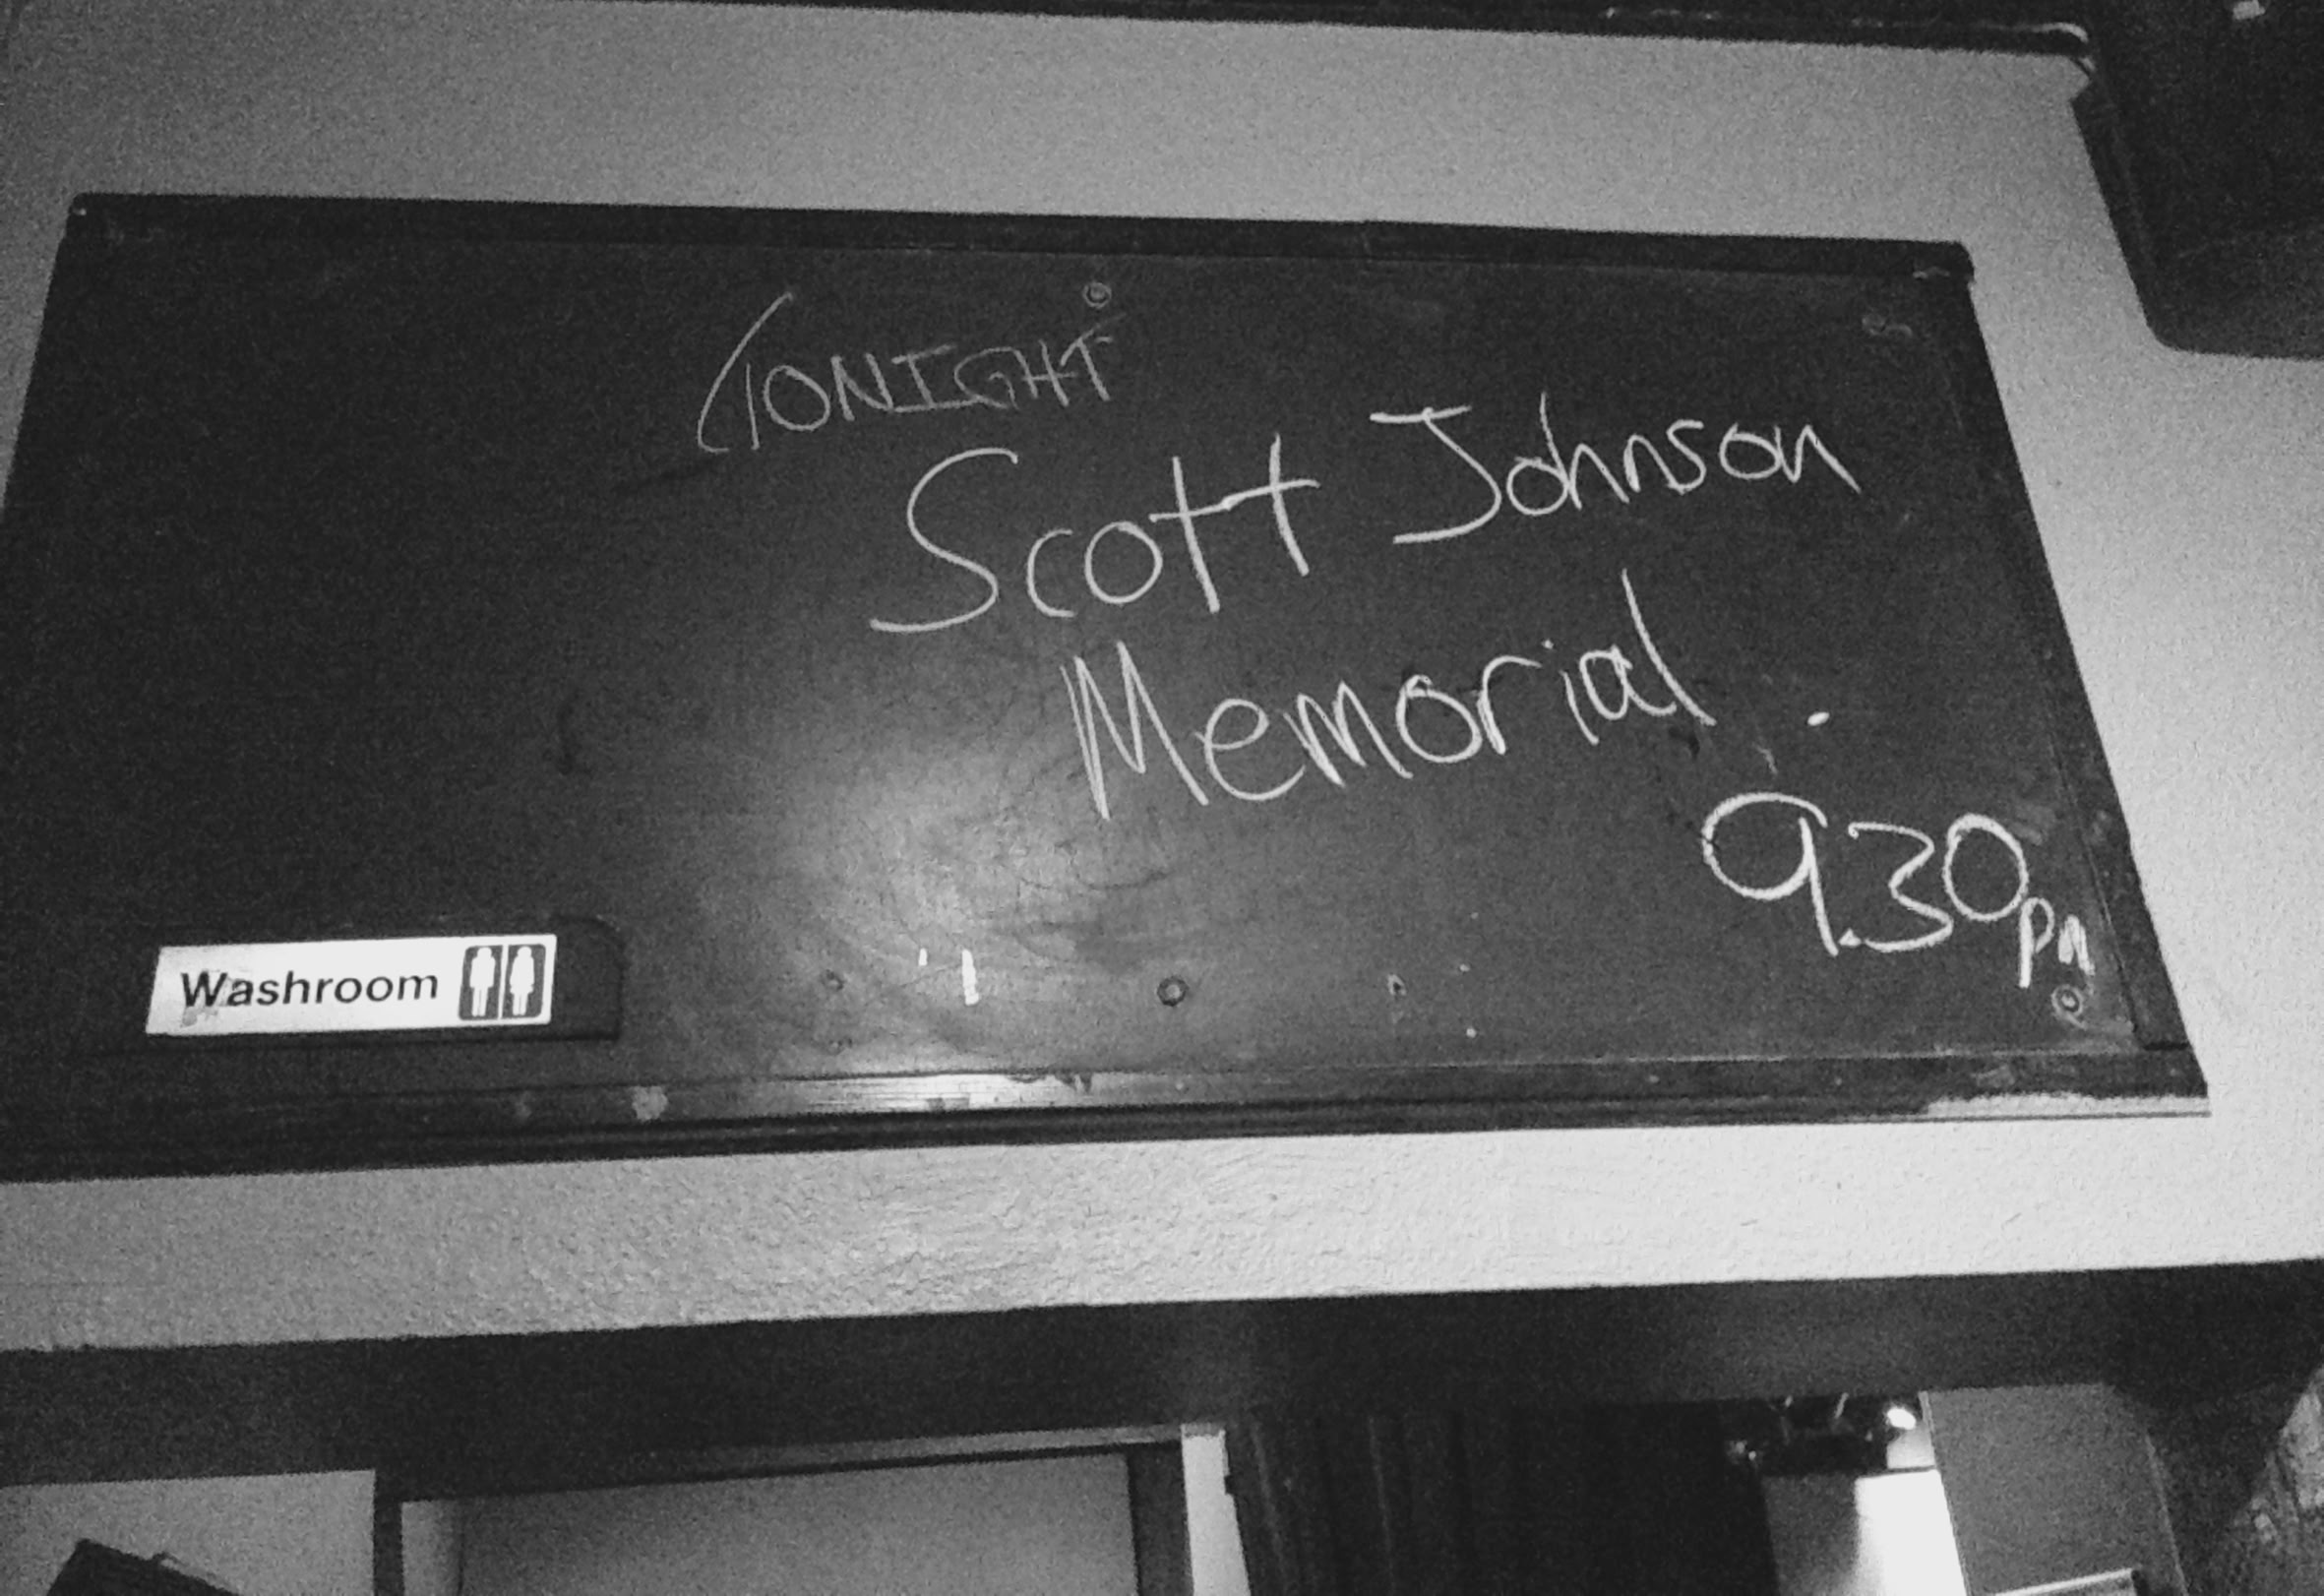 TONIGHT
Scott Johnson
Memorial.
9.30pm
Washroom